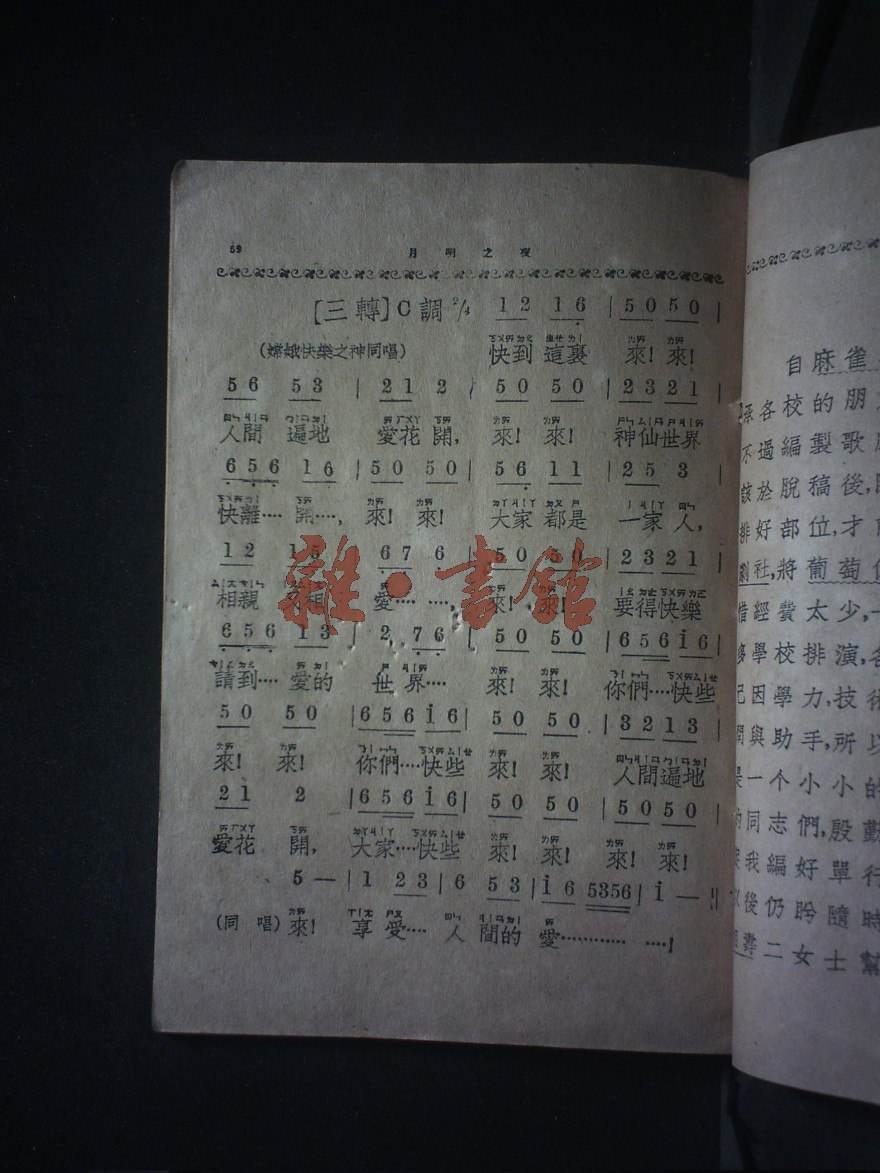 59 月明之夜
[三轉]C調 2/4 1 2 1 6 | 5 0 5 0 |
(嫦娥快樂之神同唱) 快到這裏 來! 來!
5 6 5 3 | 2 1 2 | 5 0 5 0 | 2 3 2 1 |
人間遍地 愛花開, 來! 來! 神仙世界
6 5 6 1 6 | 5 0 5 0 | 5 6 1 1 | 2 5 3 |
快離‥‥開‥‥, 來! 來! 大家都是 一家人,
1 2 1 5 6 7 6 | 5 0 5 0 | 2 3 2 1 |
相親 相 愛‥‥‥, 來! 來! 要得快樂
6 5 6 1 3 | 2 7 6 | 5 0 5 0 | 6 5 6 i 6 |
請到‥‥愛的 世界‥‥ 來! 來! 你們‥‥快些
5 0 5 0 | 6 5 6 i 6 | 5 0 5 0 | 3 2 1 3 |
來! 來! 你們‥‥快些 來! 來! 人間遍地
2 1 2 | 6 5 6 i 6 | 5 0 5 0 | 5 0 5 0 |
愛花開, 大家‥‥快些 來! 來! 來! 來!
5 — | 1 2 3 | 6 5 3 | i 6 5356 | i — ||
(同唱)來! 享受‥‥ 人間的愛‥‥‥‥‥ ‥‥!
雜·書館
自麻雀
各校的朋
不過編製歌
該於脫稿後,
排好部位,才
劇社,將葡萄
惜經費太少,一
學校排演,各
因學力,技術
與助手,所以
一个小小的
同志們,殷勤
我編好單行
後仍盼隨時
壽二女士幫